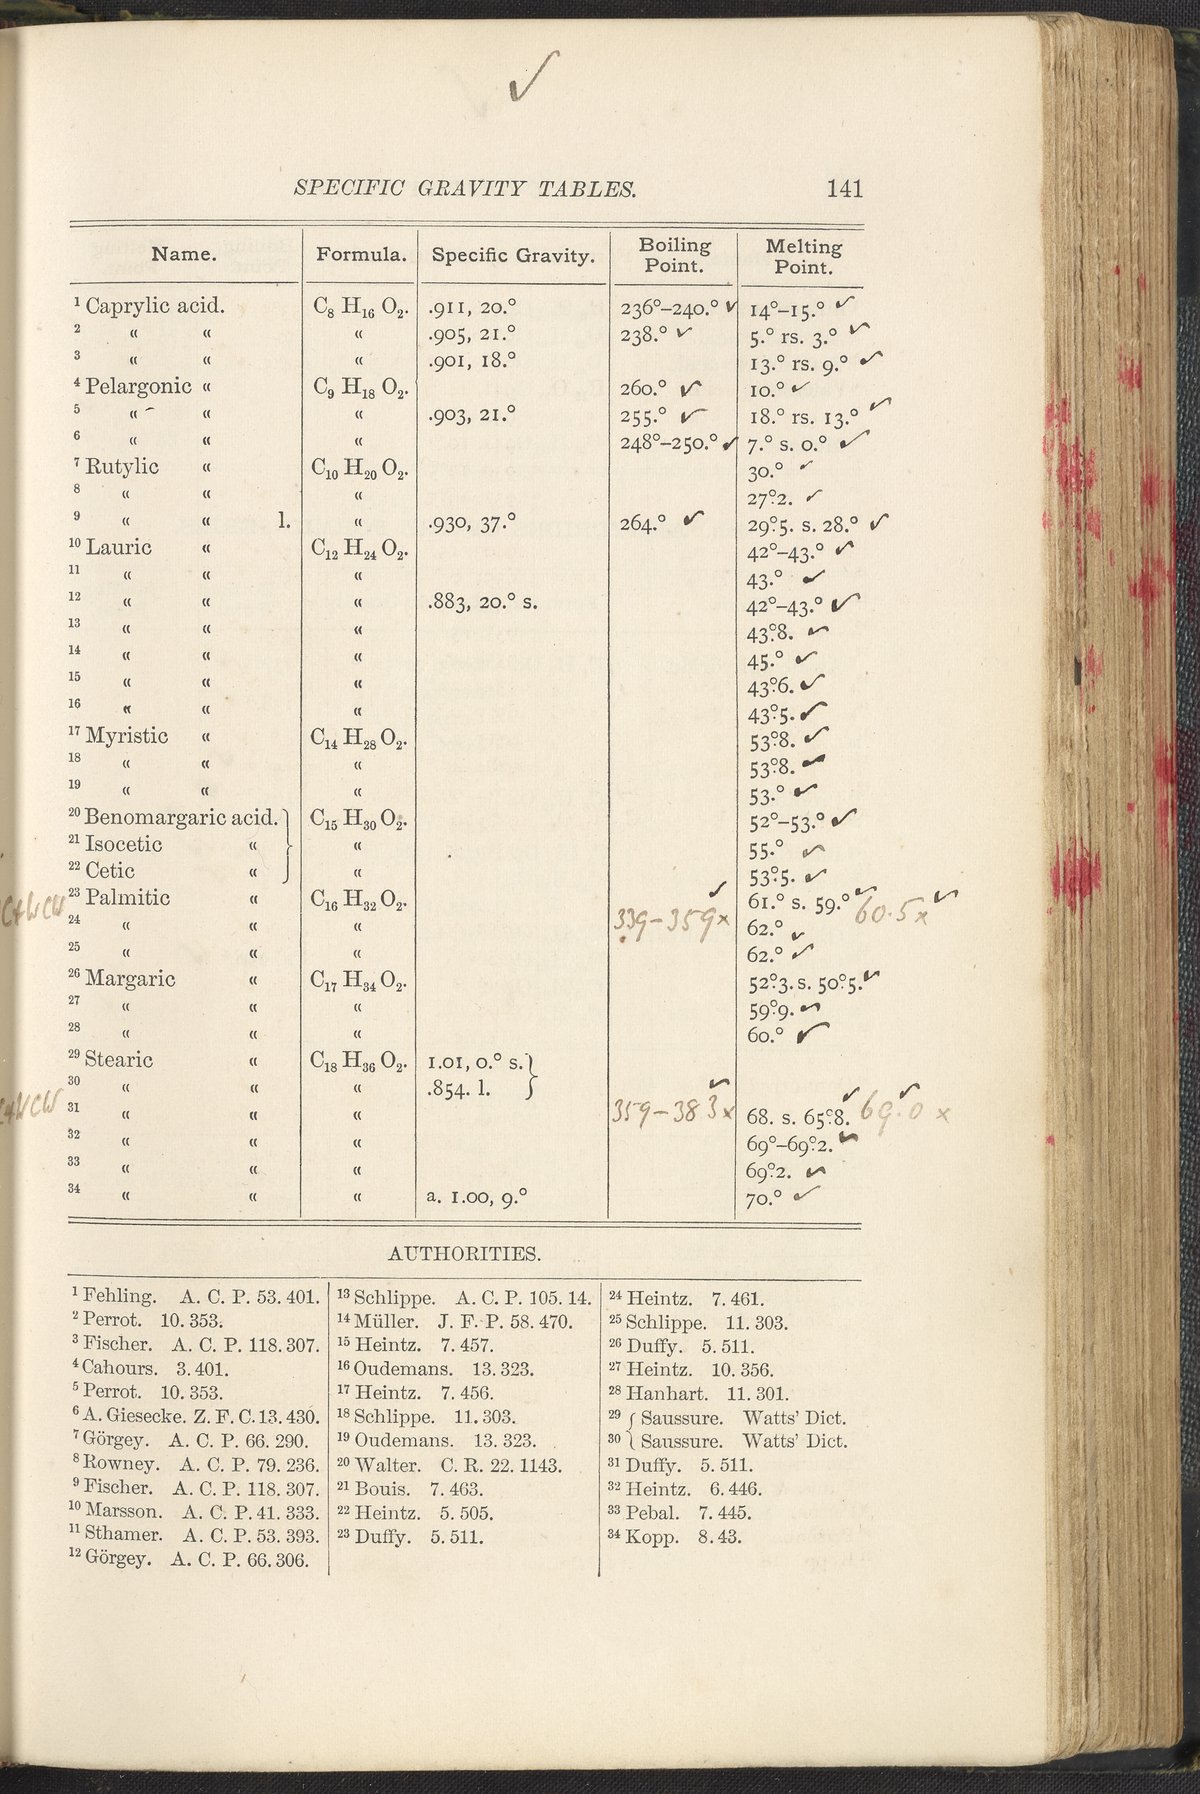 ✓
SPECIFIC GRAVITY TABLES. 141
Name. Formula. Specific Gravity. Boiling Point. Melting Point.
1 Caprylic acid. C8 H16 O2. .911, 20.° 236°–240.° ✓ 14°–15.° ✓
2 “ “ “ .905, 21.° 238.° ✓ 5.° rs. 3.° ✓
3 “ “ “ .901, 18.° 13.° rs. 9.° ✓
4 Pelargonic “ C9 H18 O2. 260.° ✓ 10.° ✓
5 “ “ “ .903, 21.° 255.° ✓ 18.° rs. 13.° ✓
6 “ “ “ 248°–250.° ✓ 7.° s. 0.° ✓
7 Rutylic “ C10 H20 O2. 30.° ✓
8 “ “ “ 27°.2. ✓
9 “ “ l. “ .930, 37.° 264.° ✓ 29°.5. s. 28.° ✓
10 Lauric “ C12 H24 O2. 42°–43.° ✓
11 “ “ “ 43.° ✓
12 “ “ “ .883, 20.° s. 42°–43.° ✓
13 “ “ “ 43°.8. ✓
14 “ “ “ 45.° ✓
15 “ “ “ 43°.6. ✓
16 “ “ “ 43°.5. ✓
17 Myristic “ C14 H28 O2. 53°.8. ✓
18 “ “ “ 53°.8. ✓
19 “ “ “ 53.° ✓
20 Benomargaric acid. C15 H30 O2. 52°–53.° ✓
21 Isocetic “ “ 55.° ✓
22 Cetic “ “ 53°.5. ✓
23 Palmitic “ C16 H32 O2. ✓ 61.° s. 59.° ✓ 60.5 x ✓
C+WCW 24 “ “ “ 339–359 x 62.° ✓
25 “ “ “ 62.° ✓
26 Margaric “ C17 H34 O2. 52°.3. s. 50°.5. ✓
27 “ “ “ 59°.9. ✓
28 “ “ “ 60.° ✓
29 Stearic “ C18 H36 O2. 1.01, 0.° s.
30 “ “ “ .854. l. ✓
C+WCW 31 “ “ “ 359–383 x 68. s. 65°.8. ✓ 69.0 x ✓
32 “ “ “ 69°–69°.2. ✓
33 “ “ “ 69°.2. ✓
34 “ “ “ a. 1.00, 9.° 70.° ✓
AUTHORITIES.
1 Fehling. A. C. P. 53. 401.
2 Perrot. 10. 353.
3 Fischer. A. C. P. 118. 307.
4 Cahours. 3. 401.
5 Perrot. 10. 353.
6 A. Giesecke. Z. F. C. 13. 430.
7 Görgey. A. C. P. 66. 290.
8 Rowney. A. C. P. 79. 236.
9 Fischer. A. C. P. 118. 307.
10 Marsson. A. C. P. 41. 333.
11 Sthamer. A. C. P. 53. 393.
12 Görgey. A. C. P. 66. 306.
13 Schlippe. A. C. P. 105. 14.
14 Müller. J. F. P. 58. 470.
15 Heintz. 7. 457.
16 Oudemans. 13. 323.
17 Heintz. 7. 456.
18 Schlippe. 11. 303.
19 Oudemans. 13. 323.
20 Walter. C. R. 22. 1143.
21 Bouis. 7. 463.
22 Heintz. 5. 505.
23 Duffy. 5. 511.
24 Heintz. 7. 461.
25 Schlippe. 11. 303.
26 Duffy. 5. 511.
27 Heintz. 10. 356.
28 Hanhart. 11. 301.
29 Saussure. Watts' Dict.
30 Saussure. Watts' Dict.
31 Duffy. 5. 511.
32 Heintz. 6. 446.
33 Pebal. 7. 445.
34 Kopp. 8. 43.